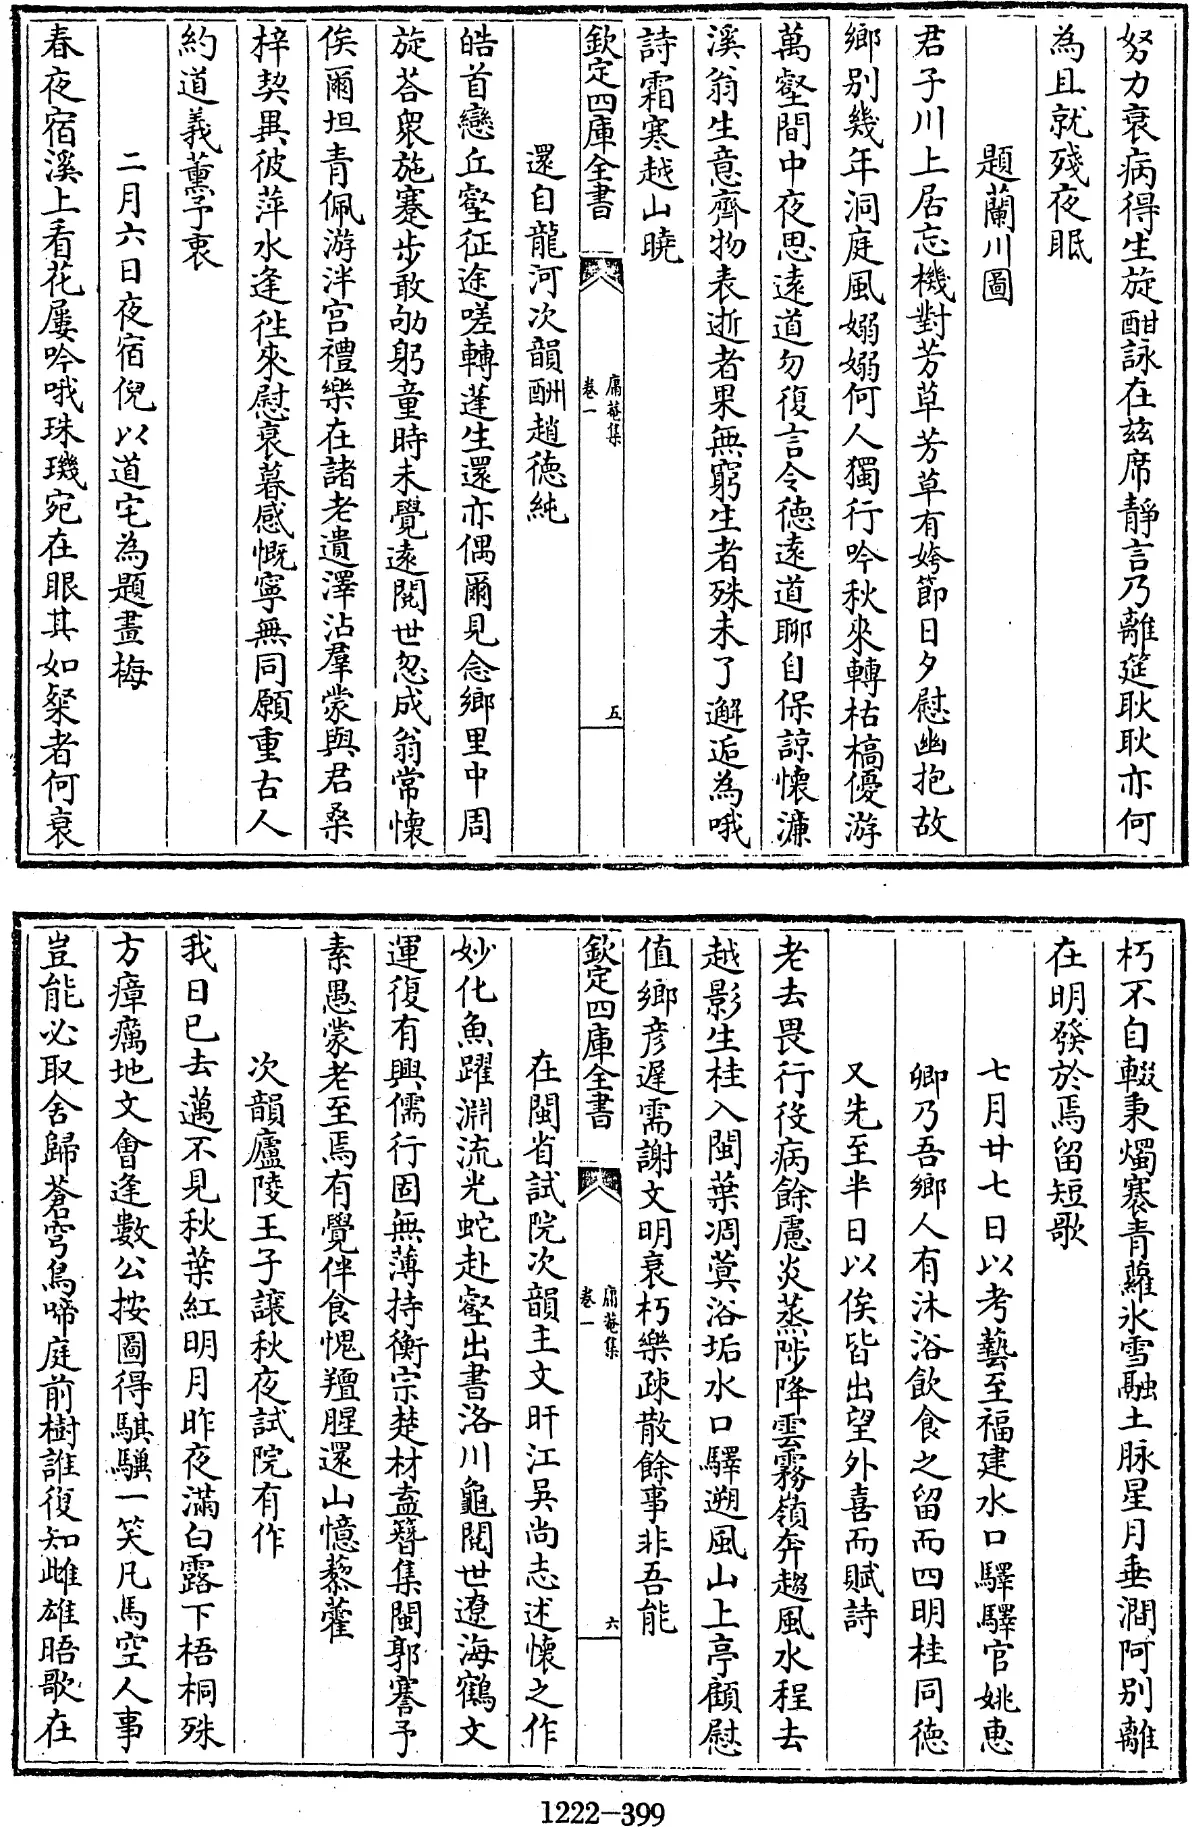 努力衰病得生旋酣詠在兹席静言乃離筵耿耿亦何
為且就殘夜眠
題蘭川圖
君子川上居忘機對芳草芳草有姱節日夕慰幽抱故
鄉别幾年洞庭風嫋嫋何人獨行吟秋來轉枯槁優游
萬壑間中夜思遠道勿復言令德遠道聊自保諒懷濂
溪翁生意齊物表逝者果無窮生者殊未了邂逅為哦
詩霜寒越山曉
欽定四庫全書
庸菴集
卷一
五
還自龍河次韻酬趙德純
皓首戀丘壑征途嗟轉蓬生還亦偶爾見念鄉里中周
旋荅衆施蹇步敢劬躬童時未覺遠閲世忽成翁常懷
俟爾坦青佩游泮宫禮樂在諸老遺澤沾羣蒙與君桑
梓契異彼萍水逢徃來慰衰暮感慨寧無同願重古人
約道義薰予衷
二月六日夜宿倪以道宅為題畫梅
春夜宿溪上看花屢吟哦珠璣宛在眼其如粲者何衰
朽不自輟秉燭褰青蘿氷雪融土脉星月垂澗阿别離
在明發於焉留短歌
七月廿七日以考藝至福建水口驛驛官姚惠
卿乃吾鄉人有沐浴飲食之留而四明桂同德
又先至半日以俟皆出望外喜而賦詩
老去畏行役病餘慮炎蒸陟降雲霧嶺奔趨風水程去
越影生桂入閩葉凋蓂浴垢水口驛遡風山上亭顧慰
值鄉彦遲需謝文明衰朽樂疎散餘事非吾能
欽定四庫全書
庸菴集
卷一
六
在閩省試院次韻主文旴江吳尚志述懷之作
妙化魚躍淵流光蛇赴壑出書洛川龜閲世遼海鶴文
運復有興儒行固無薄持衡宗楚材盍簪集閩郭謇予
素愚蒙老至焉有覺伴食愧羶腥還山憶藜藿
次韻廬陵王子讓秋夜試院有作
我日已去邁不見秋葉紅明月昨夜滿白露下梧桐殊
方瘴癘地文會逢數公按圖得騏驥一笑凡馬空人事
豈能必取舍歸蒼穹鳥啼庭前樹誰復知雌雄晤歌在
1222-399